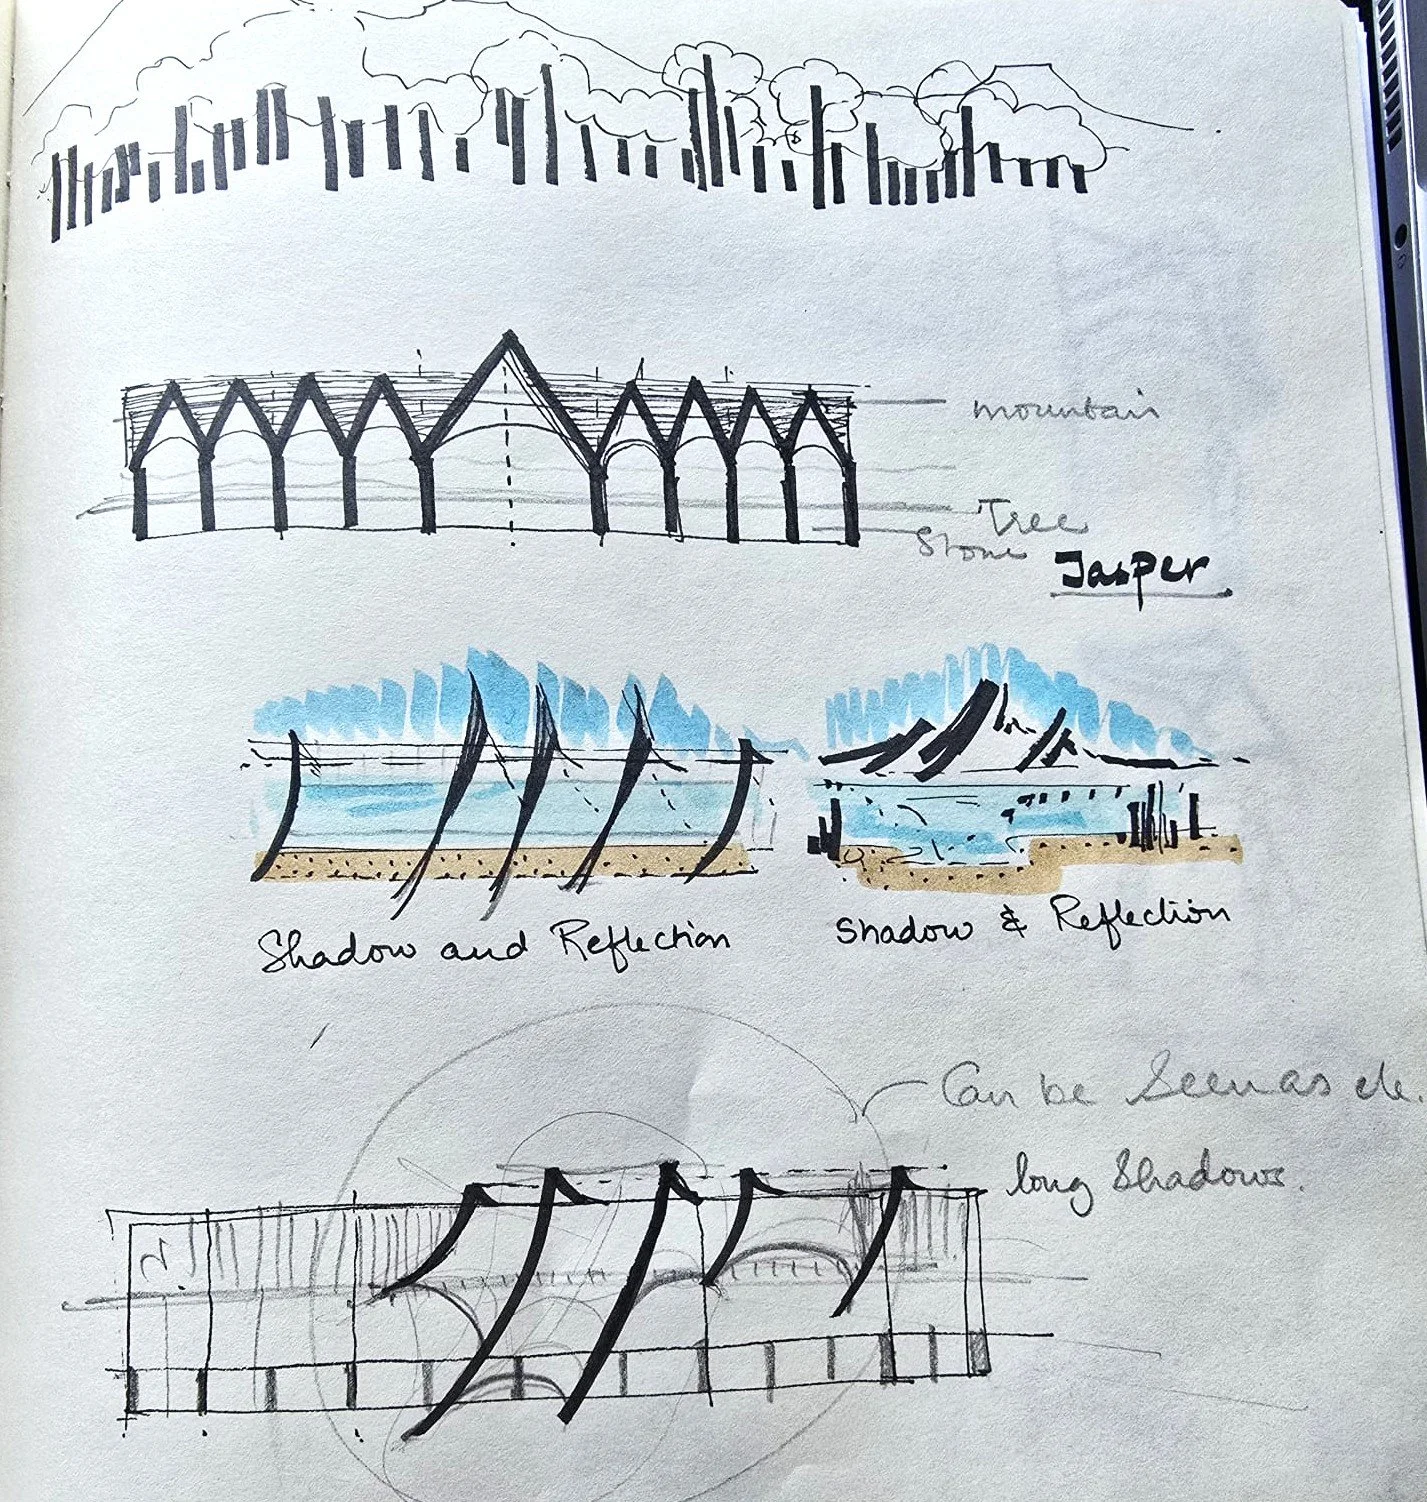 mountain
Tree
Stone
Jasper
Shadow and Reflection
Shadow & Reflection
Can be Seen as
long Shadows.